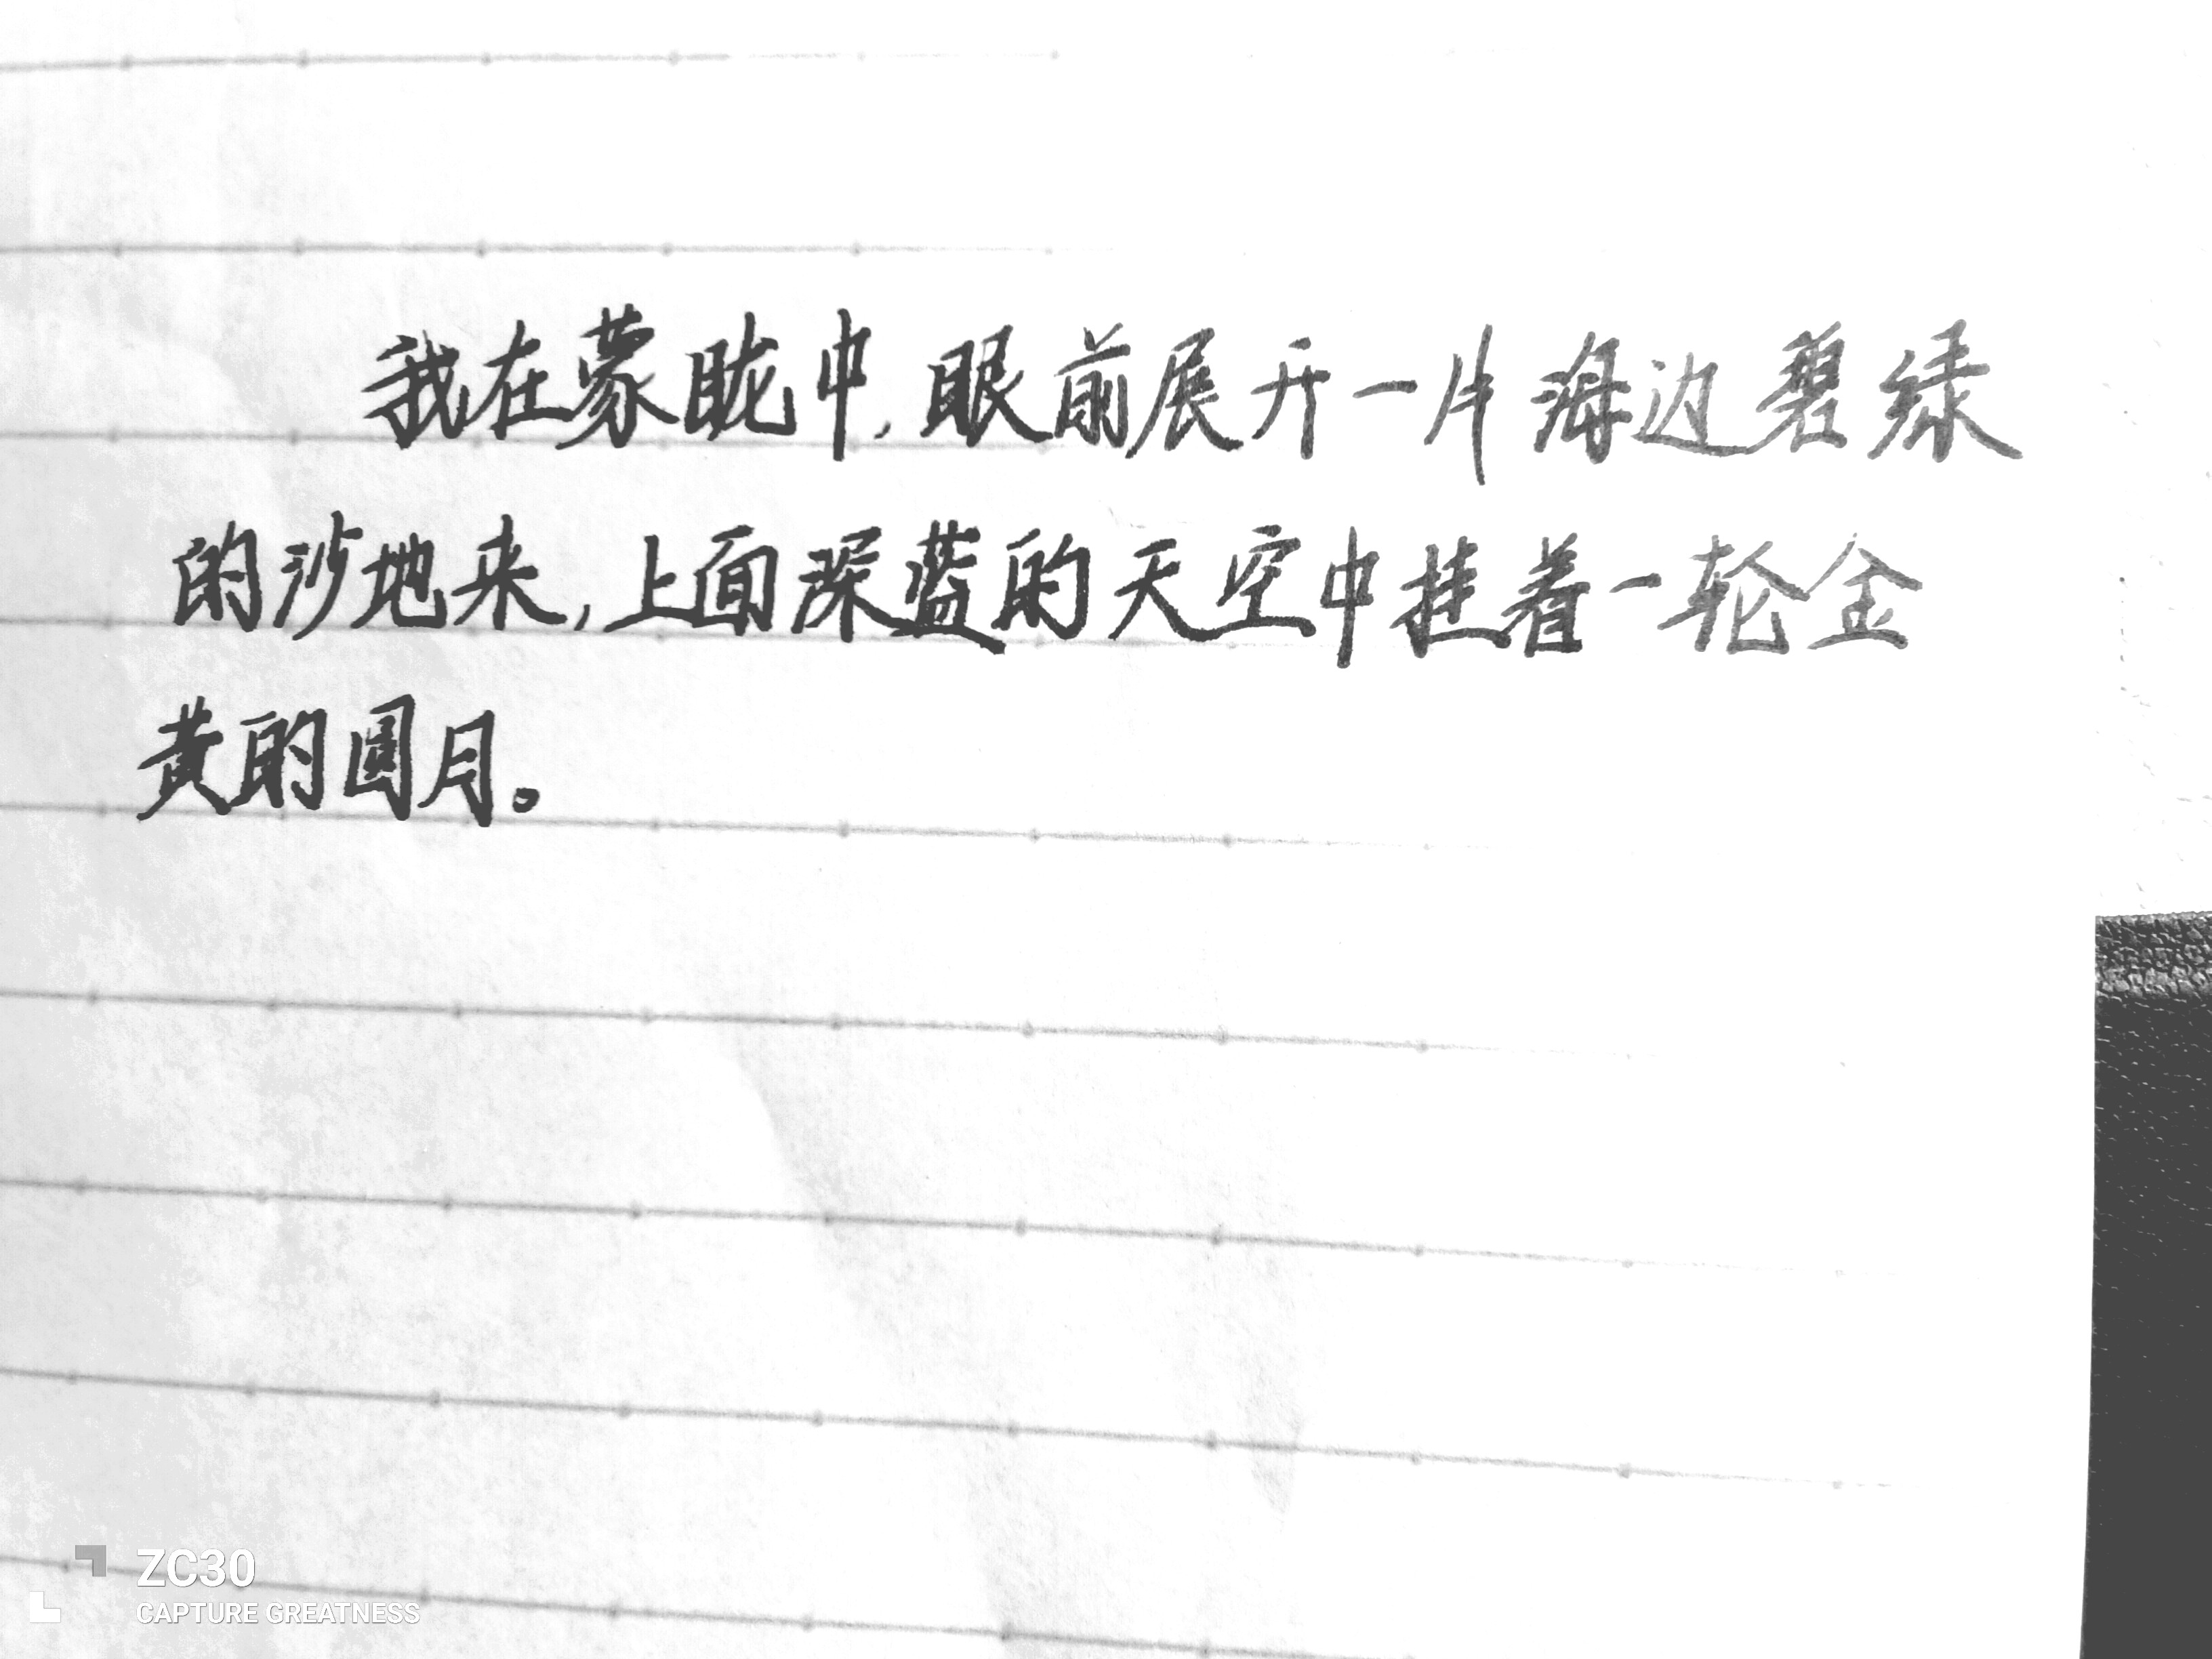 我在蒙眬中,眼前展开一片海边碧绿
的沙地来,上面深蓝的天空中挂着一轮金
黄的圆月。
ZC30
CAPTURE GREATNESS